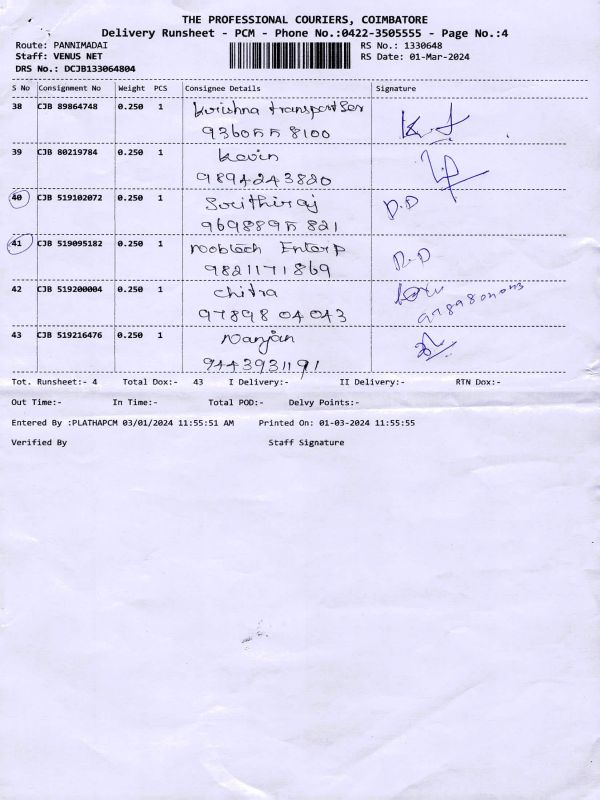 THE PROFESSIONAL COURIERS, COIMBATORE
Delivery Runsheet - PCM - Phone No.:0422-3505555 - Page No.:4
Route: PANNIMADAI
RS No.: 1330648
Staff: VENUS NET
RS Date: 01-Mar-2024
DRS No.: DCJB133064804
S No Consignment No Weight PCS Consignee Details Signature
38 CJB 89864748 0.250 1 Krishna transport Ser
8100
39 CJB 80219784 0.250 1 Kavin
9894243820
40 CJB 519102072 0.250 1 D.D
821
41 CJB 519095182 0.250 1 Enterp D.D
9821171869
42 CJB 519200004 0.250 1 chitra
97898 04043
43 CJB 519216476 0.250 1 Nanjan
9443931191
Tot. Runsheet:- 4 Total Dox:- 43 I Delivery:- II Delivery:- RTN Dox:-
Out Time:- In Time:- Total POD:- Delvy Points:-
Entered By :PLATHAPCM 03/01/2024 11:55:51 AM Printed On: 01-03-2024 11:55:55
Verified By Staff Signature